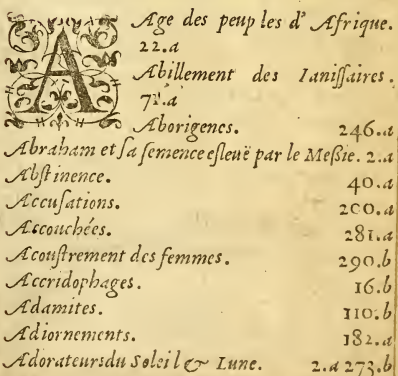 Age des peuples d' Afrique.
22.a
Abillement des Ianißaires.
71.a
Aborigenes. 246.a
Abraham et sa semence esleuë par le Meßie. 2.a
Abstinence. 40.a
Accusations. 200.a
Accouchées. 281.a
Acoustrement des femmes. 290.b
Accridophages. 16.b
Adamites. 110.b
Adiornements. 182.a
Adorateurs du Soleil & Lune. 2.a 273.b